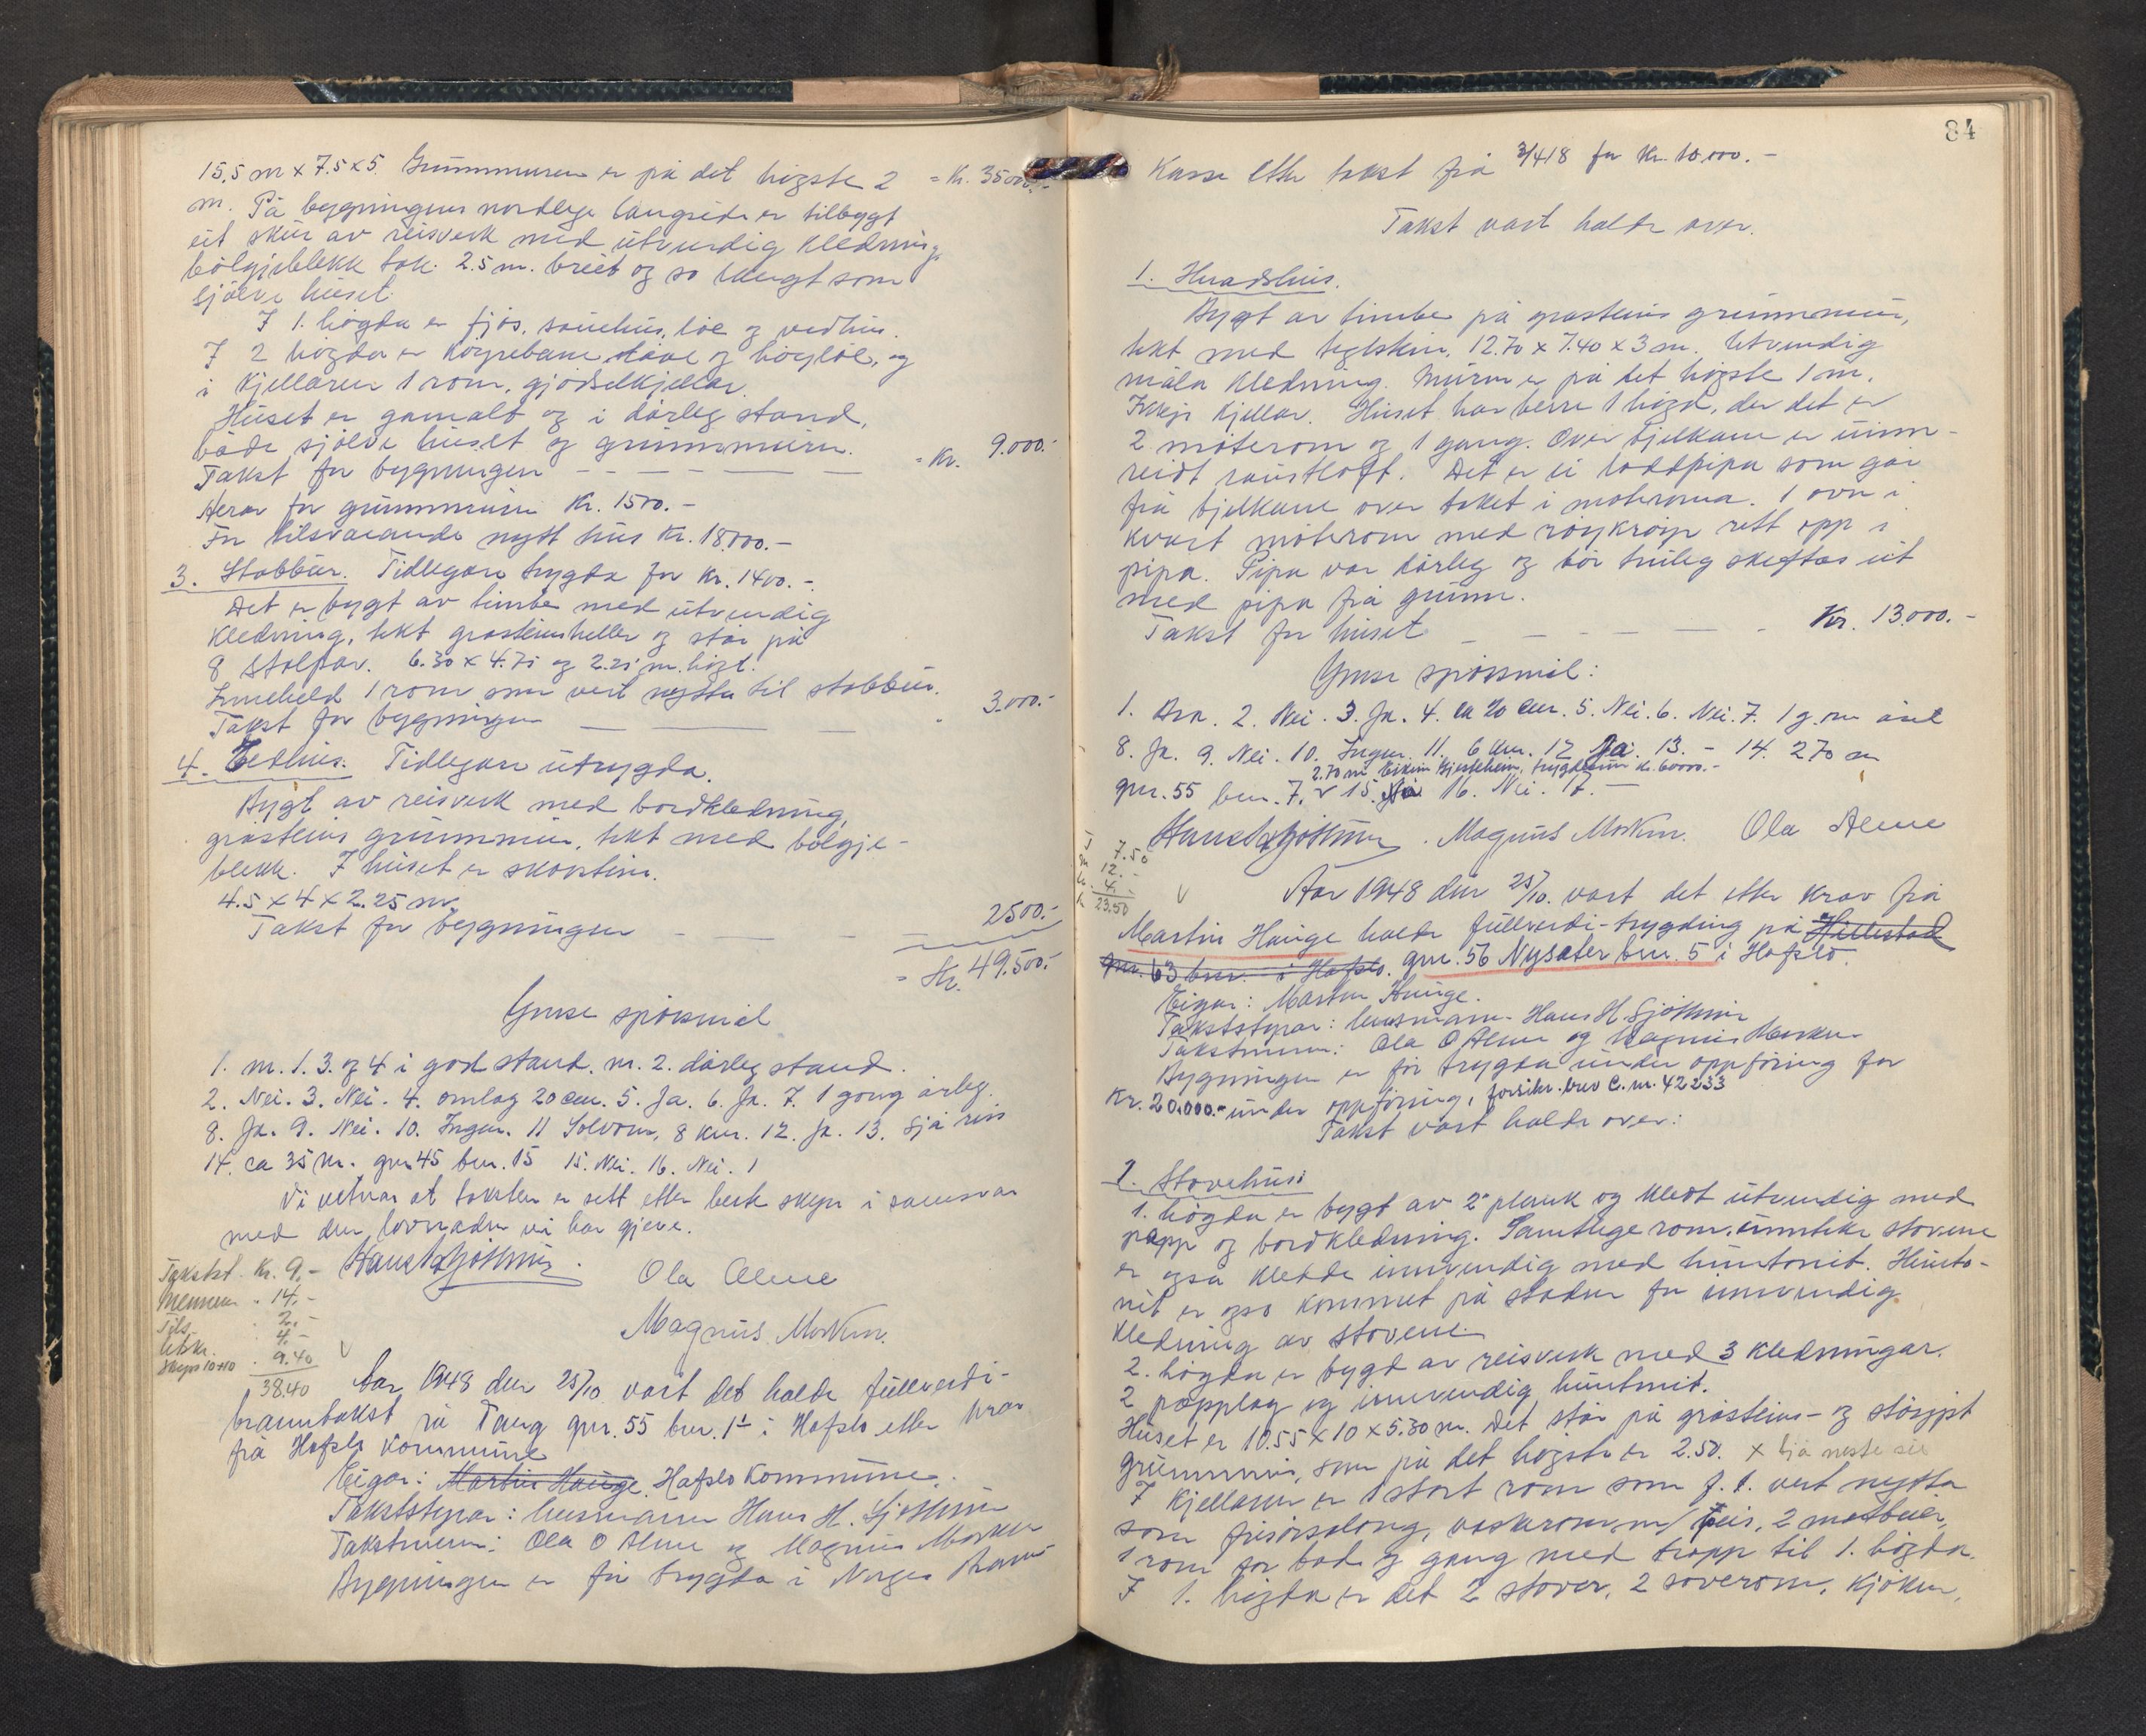 15.5 m x 7.5 x 5. Grunnmuren er på det högste 2 = Kr. 35000.-
m. På bygningens nordlege langside er tilbygt
eit skur av reisverk med utvendig kledning,
bölgjeblekk tak. 2.5 m. breit og so langt som
sjölve huset.
I 1. högda er fjös, sauehus, löe og vedhus.
I 2 högda er köyrebane, låve og höyløe, og
i kjellaren 1 rom, gjödselkjellar.
Huset er gamalt og i dårleg stand,
både sjölve huset og grunnmuren.
Takst for bygningen - - - - = Kr. 9.000.-
Herav for grunnmuren Kr. 1500.-
For tilsvarande nytt hus Kr. 18000.-
3. Stabbur. Tidlegare trygda for Kr. 1400.-
Det er bygt av timber med utvendig
kledning, tekt gråsteinsheller og står på
8 stolpar. 6.30 x 4.75 og 2.25 m. högt.
Inneheld 1 rom som vert nytta til stabbur.
Takst for bygningen — — - 3.000.-
4. Eldhus. Tidlegare utrygda.
Bygt av reisverk med bordkledning,
gråsteins grunnmur, tekt med bölgje-
blekk. I huset er skorstein.
4.5 x 4 x 2.25 m.
Takst for bygningen - - - 2500.-
= Kr. 49.500.-
Ymse spörsmål
1. nr. 1. 3. og 4 i god stand. nr. 2. dårleg stand.
2. Nei. 3. Nei. 4. omlag 20 cm. 5. Ja. 6. Ja. 7. 1 gong årleg.
8. Ja. 9. Nei. 10. Ingen. 11 Solvorn, 8 km. 12. Ja. 13. Sjå riss
14. ca 35 m. gnr 45 bnr. 15 15. Nei. 16. Nei. 1
Vi vitnar at taksten er sett etter beste skjyn i samsvar
med den lovnaden vi har gjeve.
Takstst. Kr. 9.- Hans H Sjöthun.
Mennene . 14.- Ola Alme
Tils. . 2.-
Utskr. . 4.- Magnus Morken.
Skyss 10+10 . 9.40
38.40
Aar 1948 den 25/10 vart det halde fullverdi-
branntakst på Tang gnr. 55 bnr. 1 i Hafslo etter krav
frå Hafslo kommune
Eigar: Martin Hauge Hafslo Kommune.
Takststyrar: lensmann Hans H. Sjöthun
Takstmenn: Ola O Alme og Magnus Morken
Bygningen er för trygda i Norges Brann
84
Kasse etter takst frå 3/4 18 for Kr. 10.000.-
Takst vart halde over.
1. Heradshus.
Bygt av timber på gråsteins grunnmur,
tekt med teglstein. 12.70 x 7.40 x 3 m. Utvendig
måla kledning. Muren er på det högste 1 m.
Ikkje kjellar. Huset har berre 1 högd, der det er
2 möterom og 1 gang. Over bjelkane er uinn-
reidt raustloft. Det er ei loddpipa som går
frå bjelkane over taket i möteroma. 1 ovn i
kvart möterom med röykröyr rett opp i
pipa. Pipa var dårleg og bör truleg skiftas ut
med pipa frå grunn.
Takst for huset - - - - Kr. 13.000.-
Ymse spörsmål:
1. Bra. 2. Nei. 3. Ja. 4. ca 20 cm. 5. Nei. 6. Nei. 7. 1 g. om året
8. Ja. 9. Nei. 10. Ingen. 11. 6 km. 12 Ja. 13. - 14. 270 m
2.70 m trygdesum kr. 60000.-
gnr. 55 bnr. 7. 15. 16. Nei. 17. -
Hans H Sjöthun . Magnus Morken. Ola Alme
7.50
12.-
4.-
23.50
Aar 1948 den 25/10. vart det etter krav frå
Martin Hauge halde fullverdi-trygding på Hillestad
gnr. 63 bnr. i Hafslo. gnr. 56 Nysæter bnr. 5 i Hafslo.
Eigar: Martin Hauge.
Takststyrar: lensmann Hans H. Sjöthun
Takstmenn: Ola O Alme og Magnus Morken
Bygningen er för trygda under oppföring for
Kr. 20.000.- under oppföring, forsikr. brev C. nr. 42233
Takst vart halde over:
1. Stovehus:
1. högda er bygt av 2" plank og kledt utvendig med
papp og bordkledning. Samtlege rom. unnteke stovene
er ogso kledde innvendig med huntonit. Hunto-
nit er ogso kommet på staden for innvendig
kledning av stovene.
2. högda er bygd av reisverk med 3 kledningar.
2 papplag og innvendig huntonit.
Huset er 10.55 x 10 x 5.30 m. Det står på gråsteins- og stöypt
grunnmur, som på det högste er 2.50. x Sjå neste sie
I kjellaren er 1 stort rom som f. t. vert nytta
som frisörsalong, vaskerom m/ peis, 2 matbuer,
1 rom for bad og gang med trapp til 1. högda.
I 1. högda er det 2 stover, 2 soverom, kjöken,